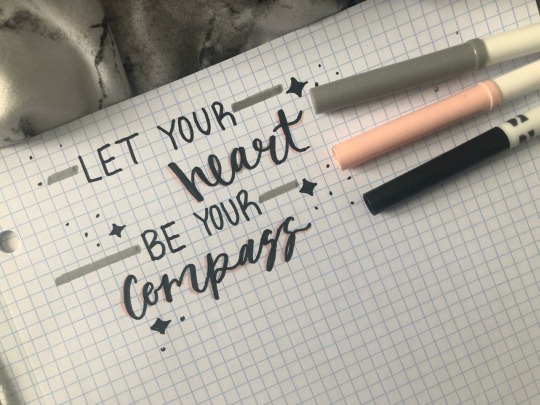 LET YOUR
heart
BE YOUR
compass